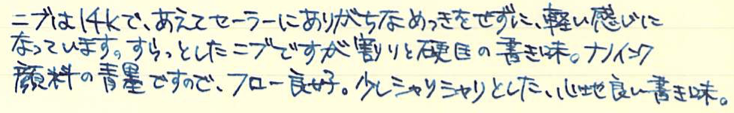 ニブは14kで、あえてセーラーにありがちなめっきをせずに、軽い感じに
なっています。すらっとしたニブですが割りと硬目の書き味。ナノインク
顔料の青墨ですので、フロー良好。少しシャリシャリとした、心地良い書き味。